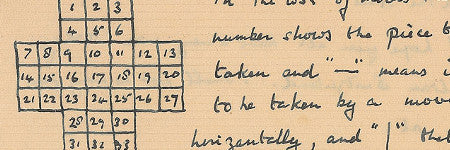 1 2 3
4 5 6
7 8 9 10 11 12 13
14 15 16 17 18 19 20
21 22 23 24 25 26 27
28 29 30
31 32 33
number shows the piece
taken and "—" means
to be taken by a
horizontally, and "|"